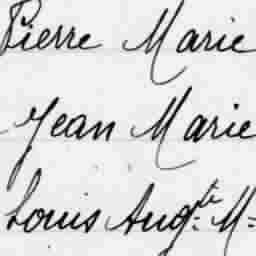 Pierre Marie
Jean Marie
Louis Aug.te M-